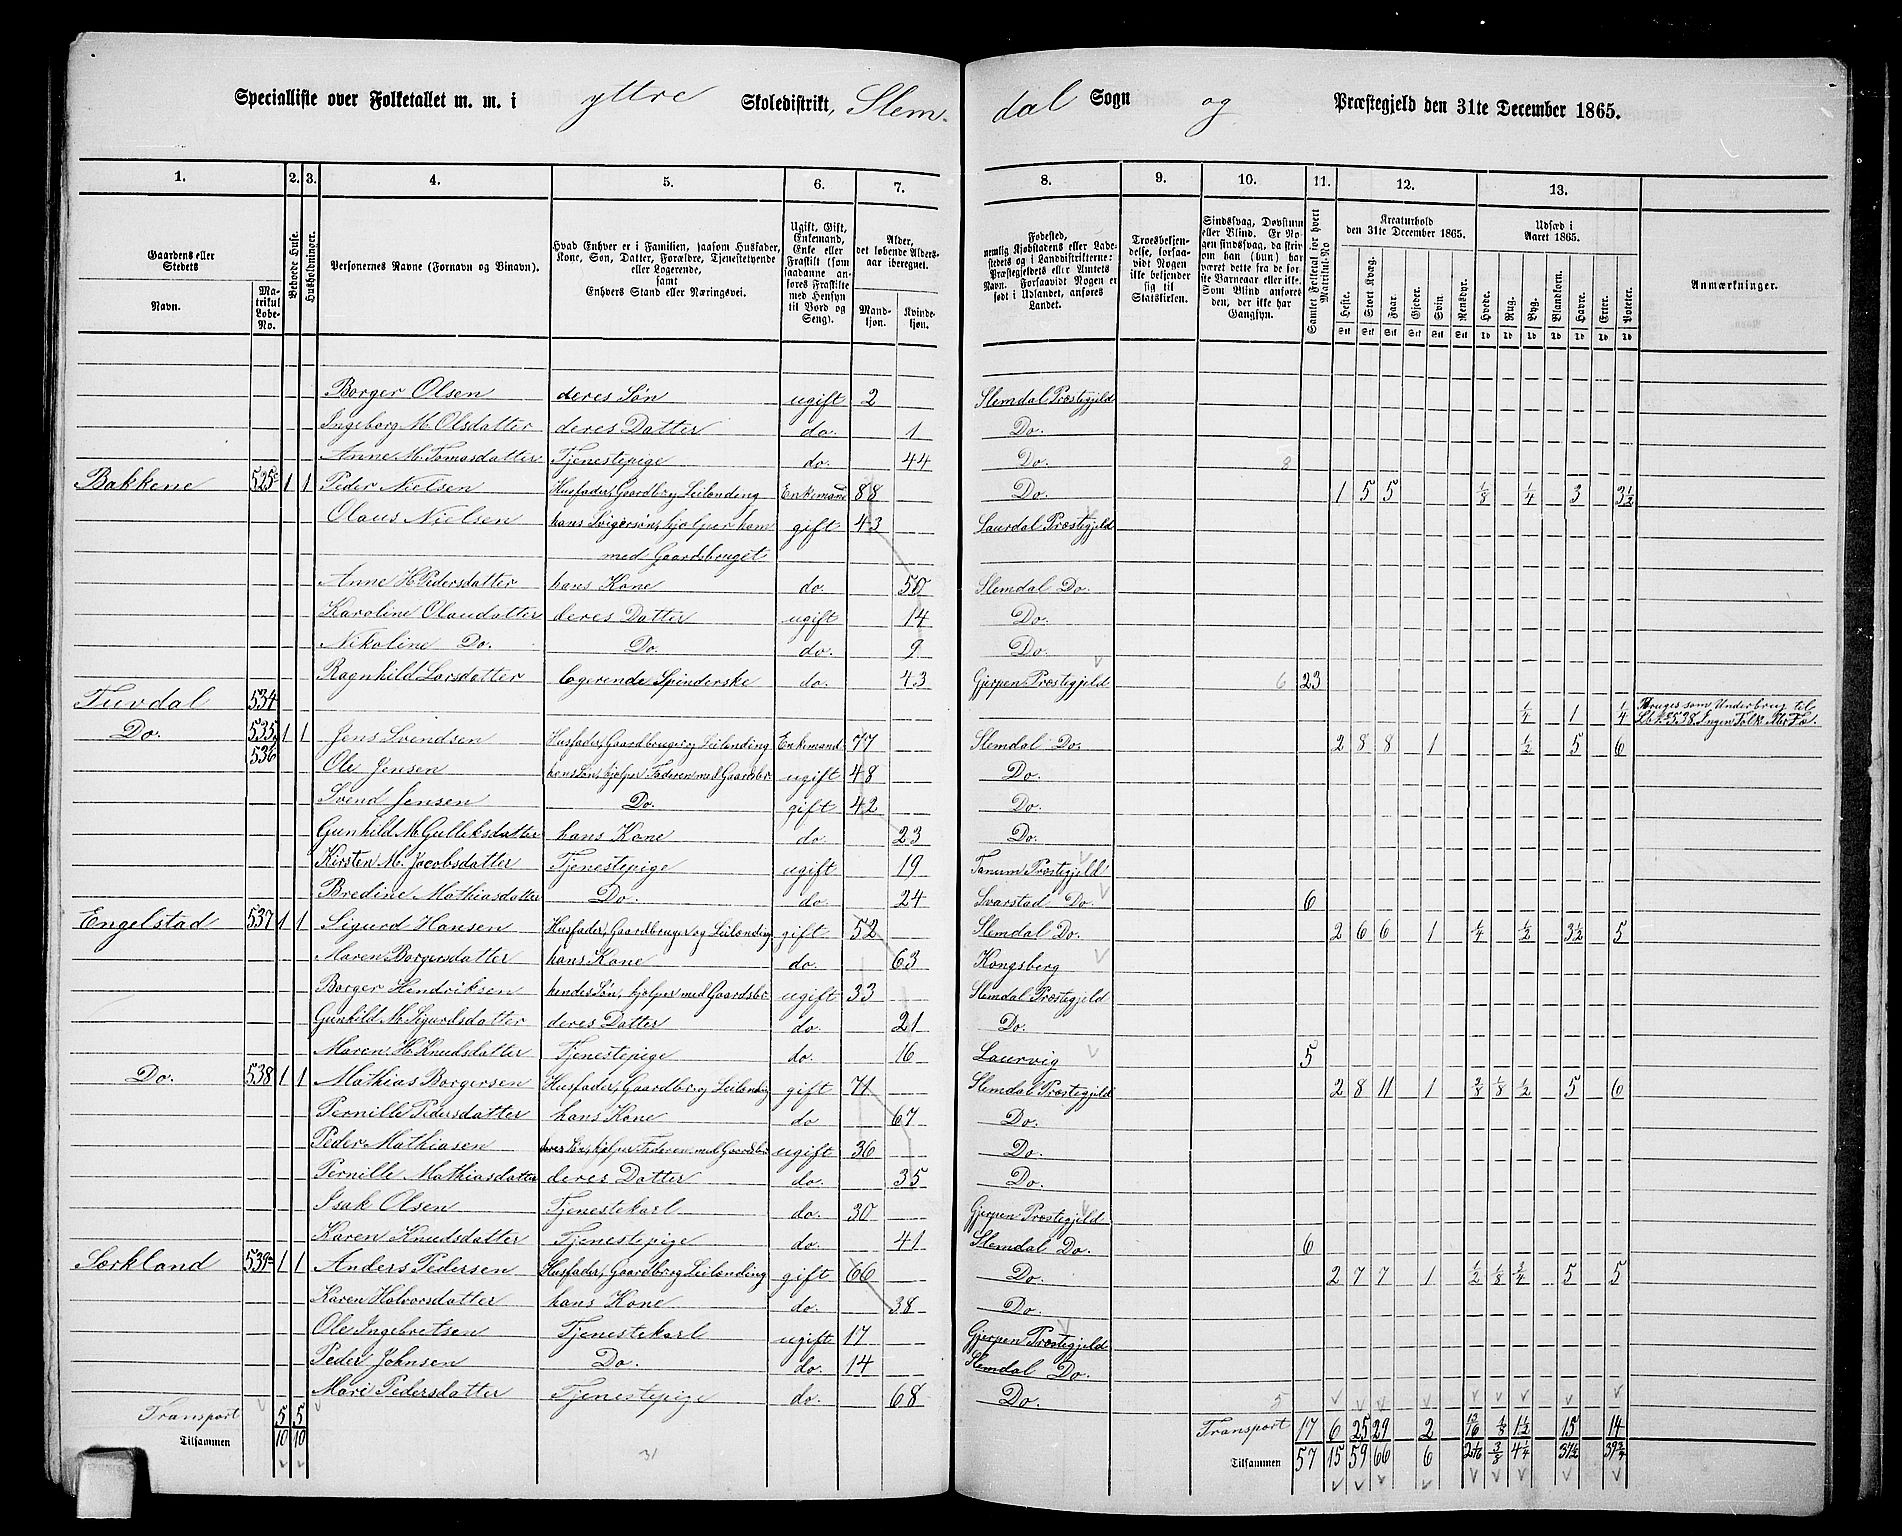 Specialliste over Folketallet m. m. i yttre Skoledistrikt, Slemdal Sogn og Præstegjeld den 31te December 1865.
1. 2. 3. 4. 5. 6. 7. 8. 9. 10. 11. 12. 13.
Gaardens eller Stedets
Navn. Matrikul Løbe-No.
Beboede Huse.
Husholdninger.
Personernes Navne (Fornavn og Tilnavn).
Hvad Enhver er i Familien, saasom Husfader, Kone, Søn, Datter, Forældre, Tjenestetyende eller Logerende, samt Enhvers Stand eller Næringsvei.
Ugift, Gift, Enkemand, Enke eller Fraskilt (som saadanne anføres Fraskilte med Hensyn til Bord og Seng).
Alder, det løbende Aldersaar iberegnet.
Mandkjøn. Kvindekjøn.
Fødested, nemlig Kjøbstadens eller Ladestedets og i Landdistrikterne: Præstegjeldets eller Amtets Navn. Forsaavidt Nogen er født i Udlandet, anføres Landet.
Troesbekjendelse, forsaavidt Nogen ikke bekjender sig til Statskirken.
Sindssvag, Døvstum eller Blind. Er Nogen sindssvag, da skriv om han (hun) har været dette fra de første Barneaar eller ikke. Som Blind anføres den, der ikke har Gangsyn.
Samlet Folketal for hvert Matrikul-No
Kreaturhold den 31te December 1865.
Heste. Stort Kvæg. Faar. Gjeder. Svin. Rensdyr.
Udsæd i Aaret 1865.
Hvede. Rug. Byg. Blandkorn. Havre. Erter. Poteter.
Anmærkninger.
Borger Olsen deres Søn ugift 2 Slemdal Præstegjeld
Ingeborg M. Olsdatter deres Datter do. 1 Do.
Anne M. Tomasdatter Tjenestepige do. 44 Do. 8
Bakkene 525c 1 1 Peder Nielsen Husfader, Gaardbr og Leilænding Enkemand 88 Do. 1 5 5 1/8 1/4 3 3 1/2
Olaus Nielsen hans Svigersøn, hjelper ham gift 43 Laurdal Præstegjeld
med Gaardsbruget
Anne H. Pedersdatter hans Kone do. 50 Slemdal Do.
Karoline Olausdatter deres Datter ugift 14 Do.
Nikoline Do. Do. do. 9 Do.
Ragnhild Larsdatter logerende Spinderske do. 43 Gjerpen Præstegjeld 6 23
Tuvdal 534 1/4 1 1/4 Bruges som Underbrug til
Do. 535 1 1 Jens Svendsen Husfader, Gaardbruger og Leilænding Enkemand 77 Slemdal Do. 2 8 8 1 1/2 5 6
536 Ole Jensen hans Søn, hjelper Faderen med Gaardsbr ugift 48 Do.
Svend Jensen Do. gift 42 Do.
Gunhild M. Gulleksdatter hans Kone do. 23 Do.
Kirsten M. Jacobsdatter Tjenestepige ugift 19 Tanum Præstegjeld
Bredine Mathiasdatter Do. do. 24 Svarstad Do. 6
Engelstad 537 1 1 Sigurd Hansen Husfader, Gaardbruger og Leilænding gift 52 Slemdal Do. 2 6 6 1 1/4 1/2 3 1/2 5
Maren Borgersdatter hans Kone do. 63 Kongsberg
Borger Hendriksen hendes Søn, hjelper med Gaardsbr ugift 33 Slemdal Præstegjeld
Gunhild M. Sigurdsdatter deres Datter do. 21 Do.
Maren H. Knudsdatter Tjenestepige do. 16 Laurvig 5
Do. 538 1 1 Mathias Borgersen Husfader, Gaardbr og Leilænding gift 71 Slemdal Præstegjeld 2 8 11 1 2/8 1/8 1/2 5 6
Pernille Pedersdatter hans Kone do 67 Do.
Peder Mathiasen deres Søn, hjelper Faderen med Gaardsbr ugift 36 Do.
Pernille Mathiasdatter deres Datter do. 35 Do.
Isak Olsen Tjenestekarl do. 30 Gjerpen Præstegjeld
Karen Knudsdatter Tjenestepige do. 41 Slemdal Do. 6
Sørkland 539a 1 1 Anders Pedersen Husfader, Gaardbr og Leilænding gift 66 Do. 2 7 7 1 1/2 1/8 3/4 5 5
Karen Halvorsdatter hans Kone do. 38 Do.
Ole Ingebretsen Tjenestekarl ugift 17 Gjerpen Præstegjeld
Peder Johnsen Do. do. 14 Slemdal Do.
Mari Pedersdatter Tjenestepige do. 68 Do. 5
Transport 5 5 Transport 17 6 25 29 2 13/16 1/8 1 1/2 15 14
Tilsammen 10 10 31 Tilsammen 57 15 59 66 6 3/8 4 1/4 39 3/4